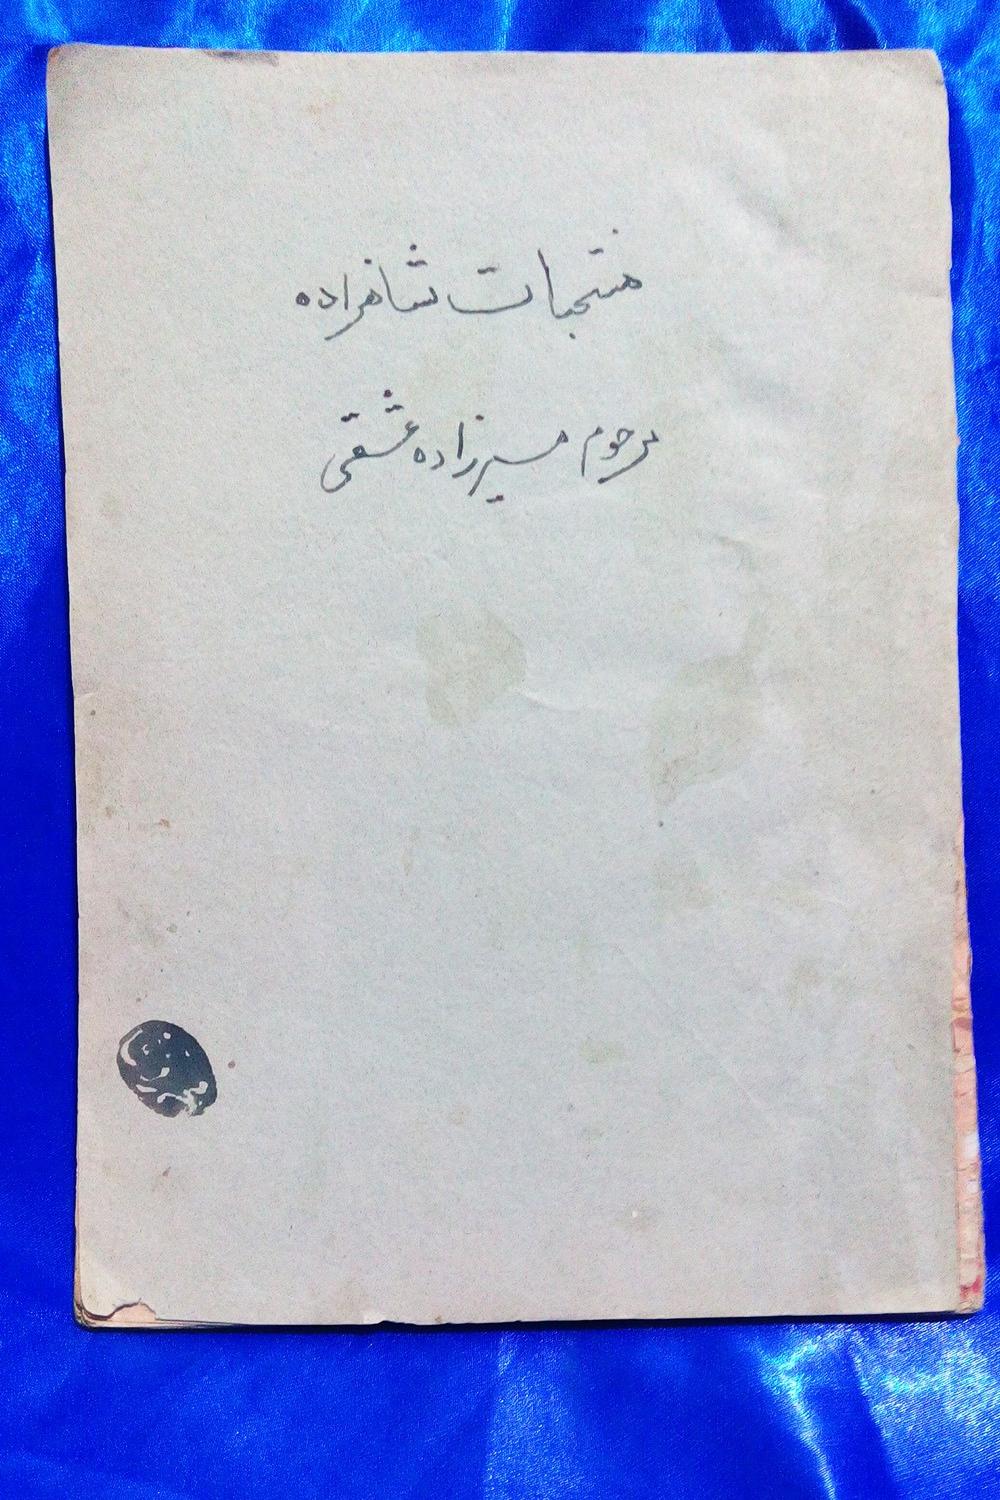 منتخبات شاهزاده
مرحوم میرزاده عشقی